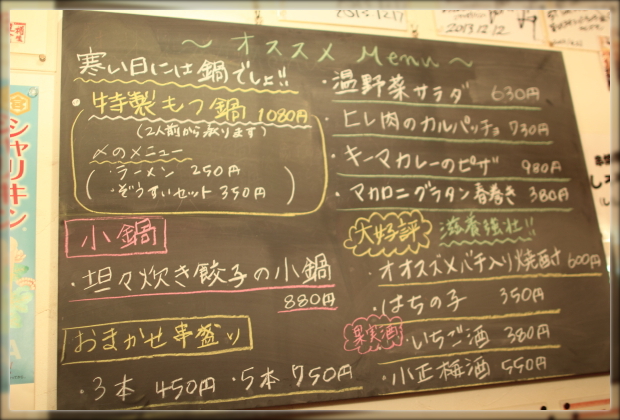 ～ オススメ Menu ～
寒い日には鍋でしょ!!
・特製もつ鍋 1080円
(2人前から承ります)
〆のメニュー
・ラーメン 250円
・ぞうすいセット 350円
小鍋
・坦々炊き餃子の小鍋
880円
おまかせ串盛り
・3本 450円 ・5本 750円
・温野菜サラダ 630円
・ヒレ肉のカルパッチョ 730円
・キーマカレーのピザ 980円
・マカロニグラタン春巻き 380円
大好評 滋養強壮!!
・オオスズメバチ入り焼酎 600円
・はちの子 350円
果実酒 ・いちご酒 380円
・小正梅酒 550円
シャリキン
2013.12.12